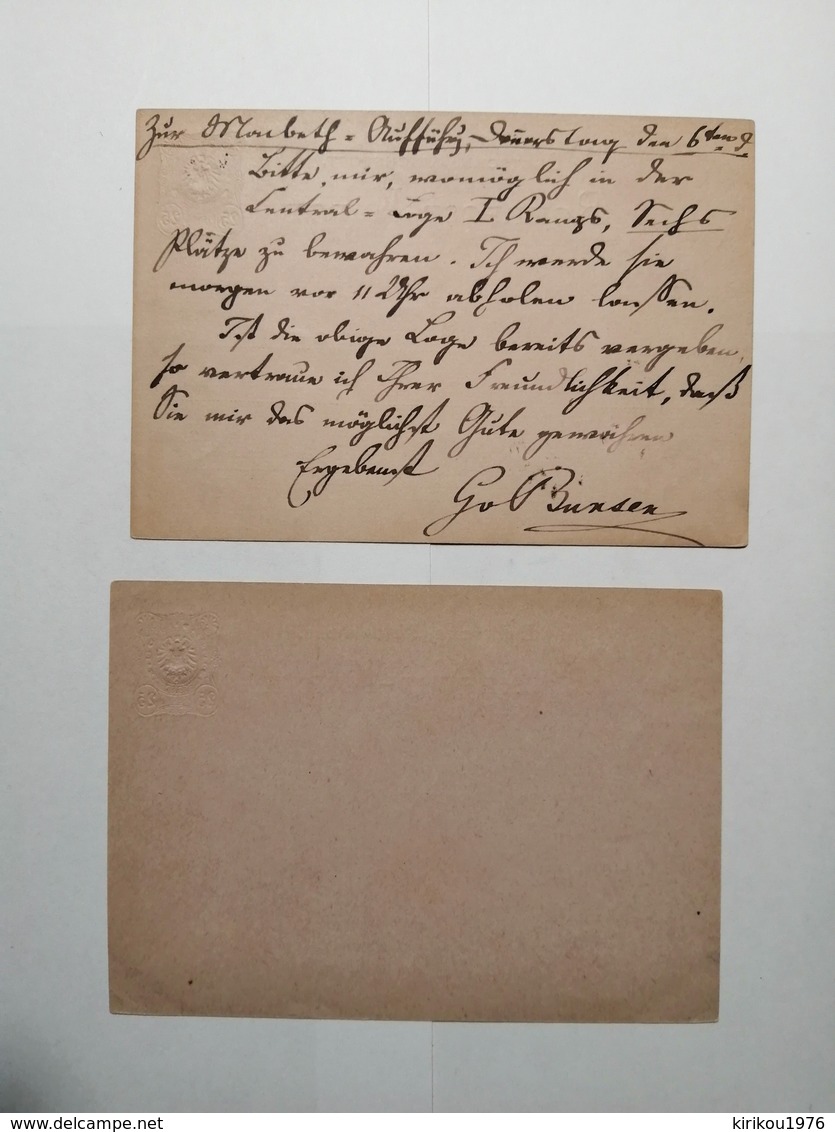 Zur Macbeth-Aufführg, Donnerstag den 6ten d.
Bitte mir, womöglich in der
Central-Loge I Rangs, Sechs
Plätze zu bewahren. Ich werde sie
morgen vor 11 Uhr abholen lassen.
Ist die obige Loge bereits vergeben,
so vertraue ich Ihrer Freundlichkeit, daß
Sie mir das möglichst Gute gewähren
Ergebenst
Bunsen
delcampe.net
kirikou1976